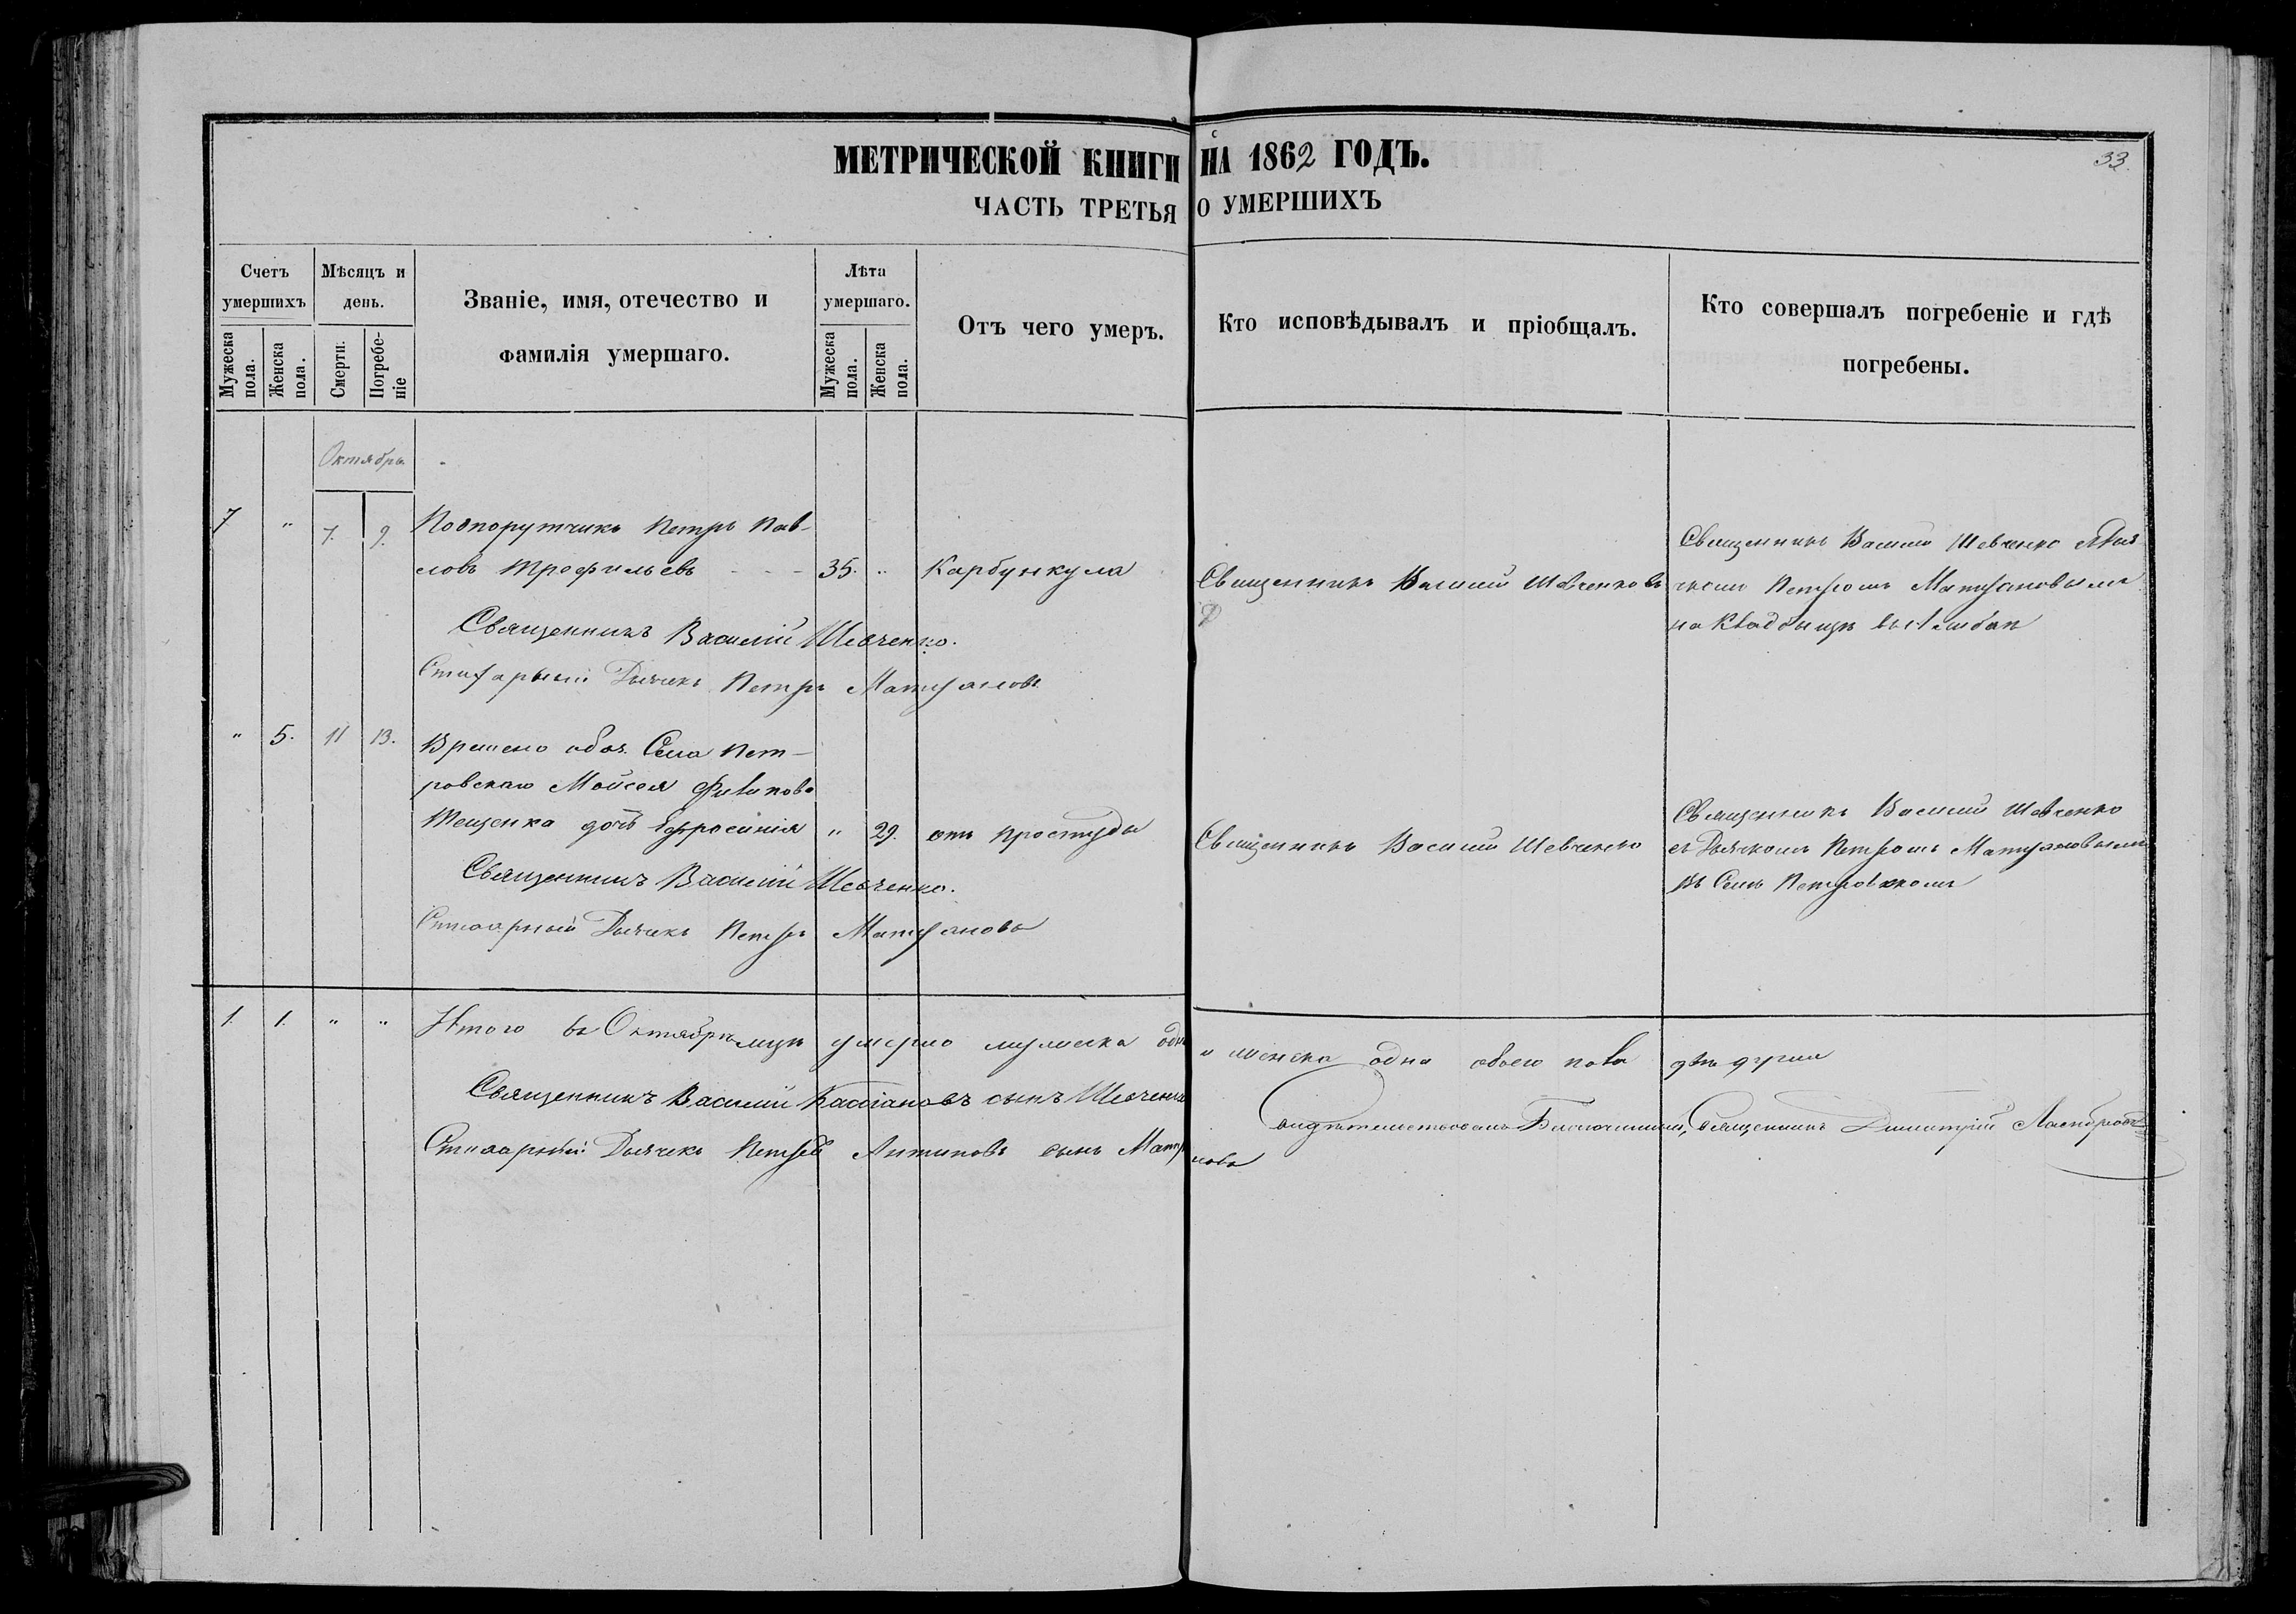 33
МЕТРИЧЕСКОЙ КНИГИ НА 1862 ГОДЪ.
ЧАСТЬ ТРЕТЬЯ О УМЕРШИХЪ
Счетъ умершихъ
Мужеска пола.
Женска пола.
Мѣсяцъ и день.
Смерти.
Погребеніе
Званіе, имя, отечество и
фамилія умершаго.
Лѣта умершаго.
Мужеска пола.
Женска пола.
Отъ чего умеръ.
Кто исповѣдывалъ и пріобщалъ.
Кто совершалъ погребеніе и гдѣ
погребены.
Октябрь
7 " 7. 9. Подпорутчикъ Петръ Пав-
ловъ Трофильевъ - - - 35. " Карбункула
Священникъ Василій Шевченковъ
Священникъ Василій Шевченко съ Дья
чкомъ Петромъ
на Кладбищѣ
Священникъ Василій Шевченко.
Стихарный Дьячекъ Петръ
" 5. 11 13. Времено обяз. Села Пет-
ровскаго Мойсея Филипова
Тещенка дочь Ефросинія " 29. отъ простуды
Священникъ Василій Шевченко
Священникъ Василій Шевченко
съ Дьячкомъ Петромъ
въ Селѣ Петровскомъ
Священникъ Василій Шевченко.
Стихарный Дьячекъ Петръ
1. 1. " " Итого въ Октябрѣ мцѣ умерло мужеска одн и женска одна обоего пола двѣ души
Священникъ Василій Кассіановъ сынъ Шевченко
Свидѣтельствовалъ Благочинный, Священникъ Димитрій
Стихарный Дьячекъ Петръ Антиповъ сынъ